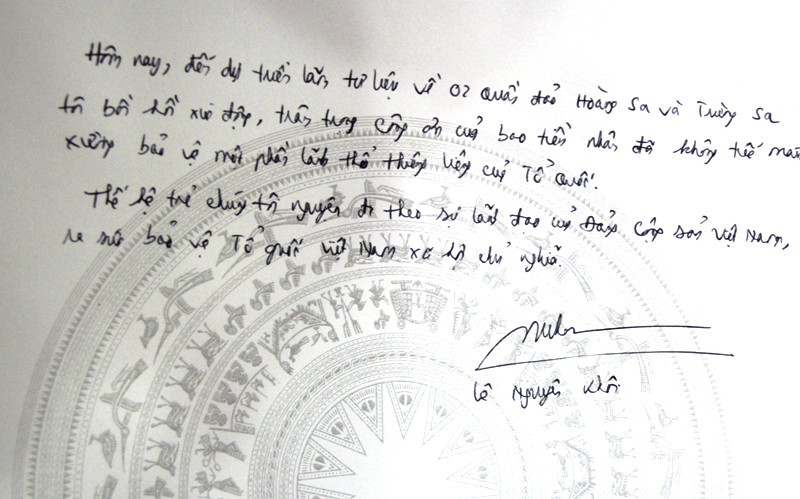 Hôm nay, đến dự triển lãm tư liệu về 02 Quần đảo Hoàng Sa và Trường Sa
tôi bồi hồi xúc động, trân trọng công ơn của bao tiền nhân đã không tiếc máu
xương bảo vệ một phần lãnh thổ thiêng liêng của Tổ Quốc.
Thế hệ trẻ chúng tôi nguyện đi theo sự lãnh đạo của Đảng Cộng sản Việt Nam,
ra sức bảo vệ Tổ quốc Việt Nam xã hội chủ nghĩa.
Lê Nguyên Khôi